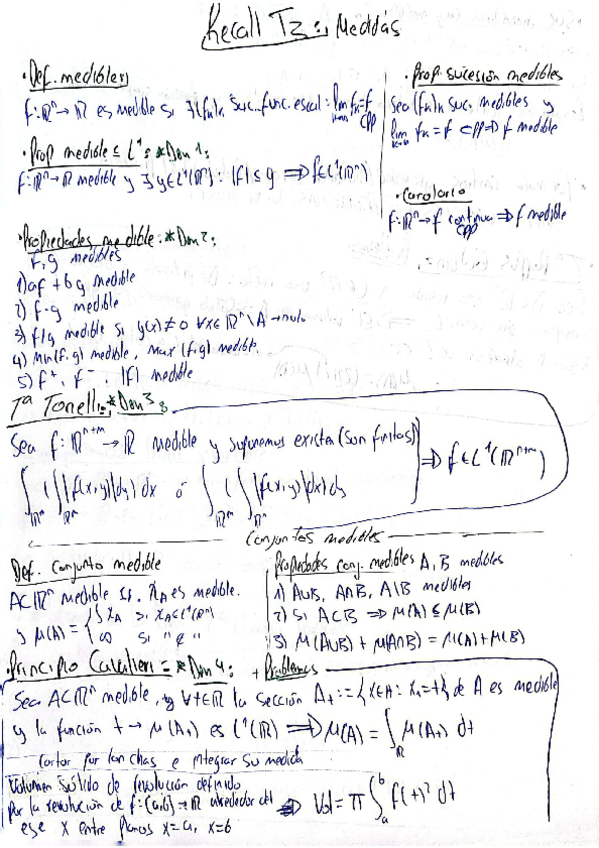 Recall T3: Medidas
· Def. medible:
f: ℝⁿ → ℝ es medible si ∃(fₖ)ₖ suc. func. escal: lim fₖ = f
k→∞ CPP
· Prop medible ≤ L¹: *Dem 1:
f: ℝⁿ → ℝ medible y ∃ g ∈ L¹(ℝⁿ): |f| ≤ g ⟹ f ∈ L¹(ℝⁿ)
· Prop. sucesión medibles
Sea (fₖ)ₖ suc. medibles y
lim fₖ = f CPP ⟹ f medible
k→∞
· Corolario
f: ℝⁿ → f continua ⟹ f medible
CPP
· Propiedades medible: *Dem 2:
f, g medibles
1) af + bg medible
2) f·g medible
3) f/g medible si g(x) ≠ 0 ∀x ∈ ℝⁿ \ A → nulo
4) Min(f,g) medible, Max(f,g) medible.
5) f⁺, f⁻, |f| medible
Tª Tonelli: *Dem 3:
Sea f: ℝⁿ⁺ᵐ → ℝ medible y suponemos existen (son finitas)
∫ ( ∫ |f(x,y)| dy ) dx ó ∫ ( ∫ |f(x,y)| dx ) dy ⟹ f ∈ L¹(ℝⁿ⁺ᵐ)
Conjuntos medibles
Def. Conjunto medible
A ⊂ ℝⁿ medible si χ_A es medible.
y μ(A) = { ∫ χ_A si χ_A ∈ L¹(ℝⁿ)
∞ si " ∉ "
· Propiedades conj. medibles A, B medibles
1) A∪B, A∩B, A\B medibles
2) Si A⊂B ⟹ μ(A) ≤ μ(B)
3) μ(A∪B) + μ(A∩B) = μ(A) + μ(B)
· Principio Cavalieri = *Dem 4: + Problemas
Sea A ⊂ ℝⁿ medible, y ∀t ∈ ℝ la sección Aₜ := {x ∈ A: xₙ = t} de A es medible
y la función t → μ(Aₜ) es L¹(ℝ) ⟹ μ(A) = ∫ μ(Aₜ) dt
ℝ
Cortar por lonchas e integrar su medida
Volumen sólido de revolución definido
Por la revolución de f: (a,b) → ℝ alrededor del ⟹ Vol = π ∫ₐᵇ f(t)² dt
eje x entre planos x=a, x=b